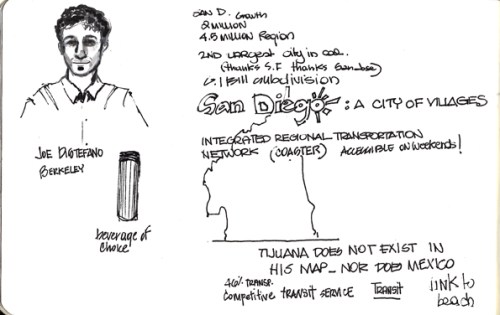 SAN D. Growth
2 MILLION
4.5 MILLION Region
2ND Largest city in COL.
(thanks S.F thanks San Jose)
1 Bill subdivision
San Diego: A CITY OF VILLAGES
INTEGRATED REGIONAL TRANSPORTATION
NETWORK (COASTER) ACCESSIBLE ON WEEKENDS!
JOE DISTEFANO
BERKELEY
beverage of
choice
TIJUANA DOES NOT EXIST IN
HIS MAP_ NOR DOES MEXICO
46% TRANSP.
Competitive TRANSIT SERVICE TRANSIT
link to
beach